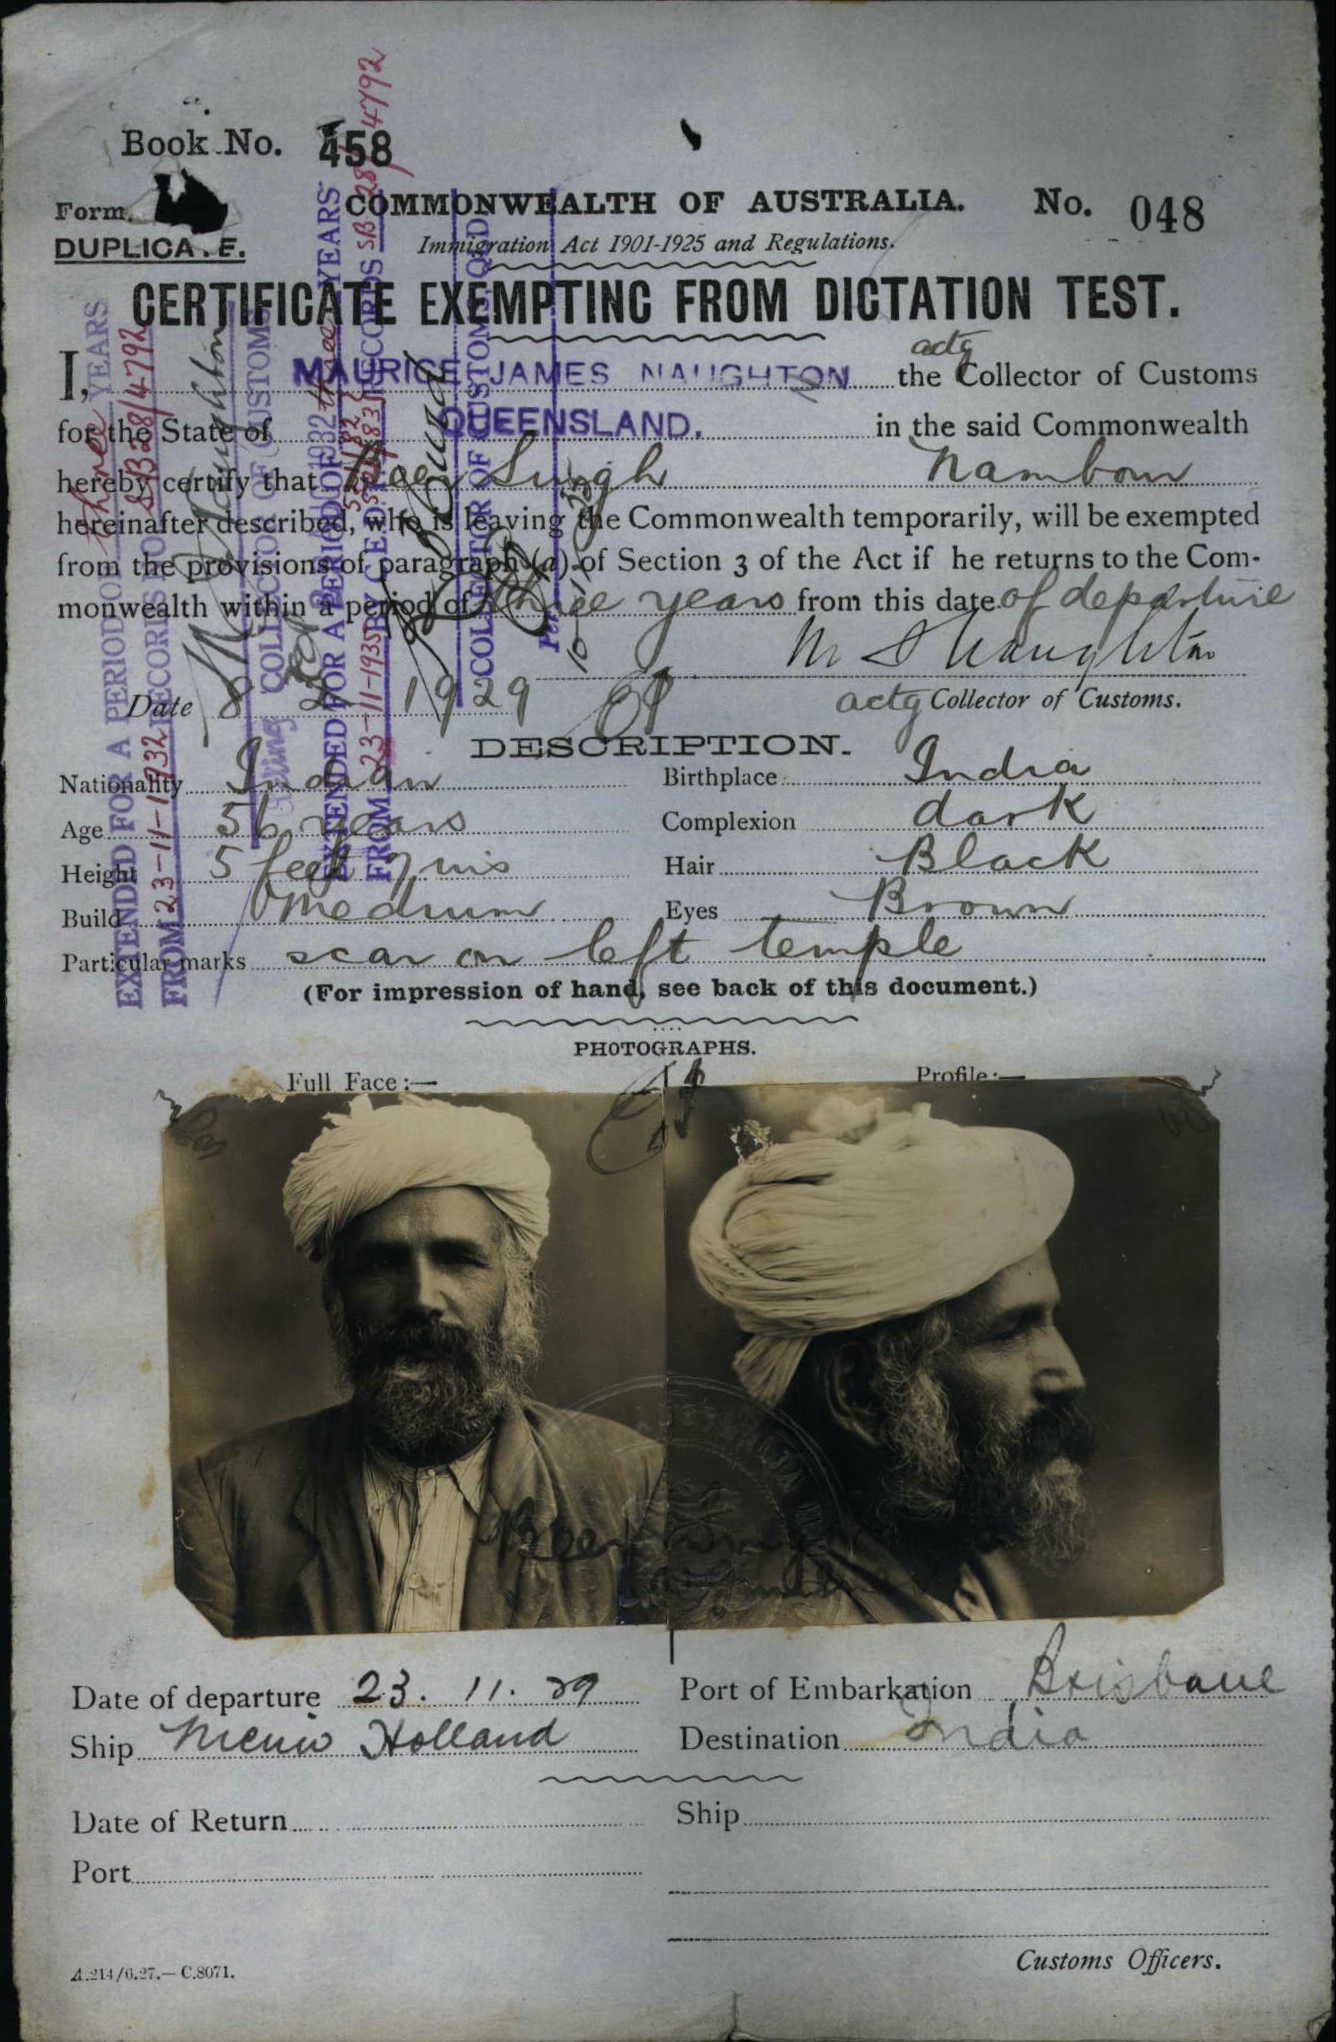 Book No. 458
Form.
COMMONWEALTH OF AUSTRALIA. No. 048
DUPLICA.E.
Immigration Act 1901-1925 and Regulations.
CERTIFICATE EXEMPTING FROM DICTATION TEST.
I, MAURICE JAMES NAUGHTON actg the Collector of Customs
for the State of QUEENSLAND. in the said Commonwealth
hereby certify that Beer Singh Nambour
hereinafter described, who is leaving the Commonwealth temporarily, will be exempted
from the provisions of paragraph (a) of Section 3 of the Act if he returns to the Com-
monwealth within a period of three years from this date of departure
Date 8 1929
actg Collector of Customs.
DESCRIPTION.
Nationality Indian Birthplace India
Age 56 years Complexion dark
Height 5 feet 7 ins Hair Black
Build Medium Eyes Brown
Particular marks scar on left temple
(For impression of hand, see back of this document.)
PHOTOGRAPHS.
Full Face :— Profile :—
Date of departure 23. 11. 29 Port of Embarkation Brisbane
Ship Holland Destination India
Date of Return Ship
Port
Customs Officers.
A.214/6.27.— C.8071.
EXTENDED FOR A PERIOD OF three YEARS
FROM 23-11-1932 RECORDS FOR SB28/4792
COLLECTOR OF CUSTOMS
EXTENDED FOR A PERIOD OF three YEARS
FROM 23-11-1935 RECORDS SB 28/4792
COLLECTOR OF CUSTOMS QLD